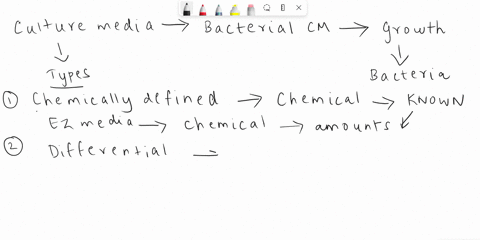 Culture media → Bacterial CM → Growth
Types
Bacteria
① Chemically defined → Chemical → KNOWN
EZ media → chemical → amounts
② Differential